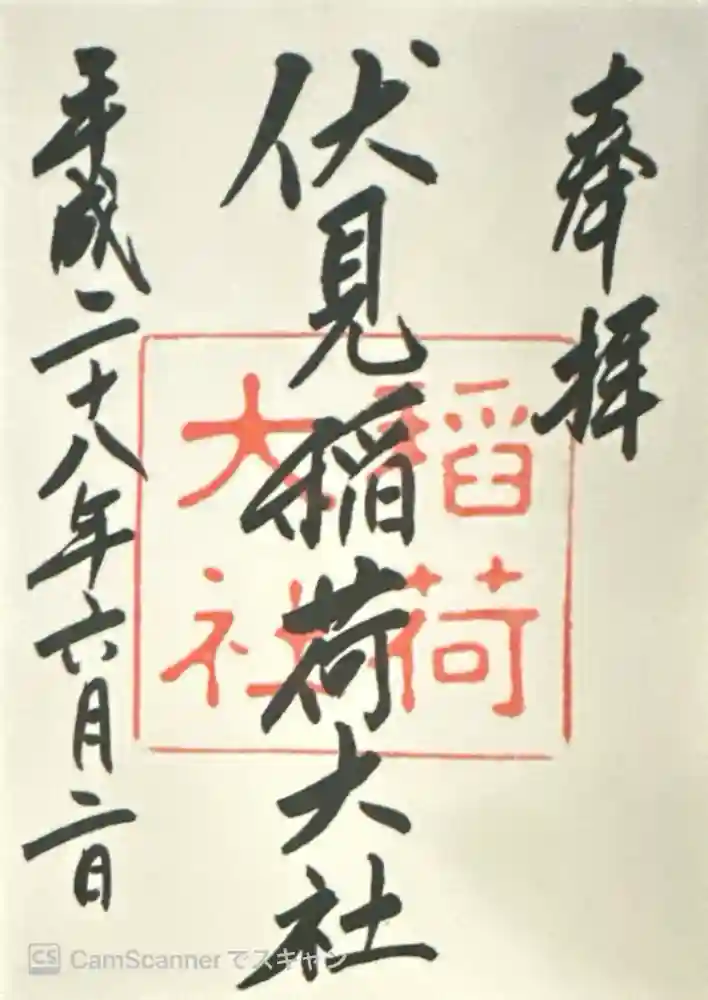 奉拝
伏見稲荷大社
平成二十八年六月二日
稲荷
大社
CS CamScanner でスキャン